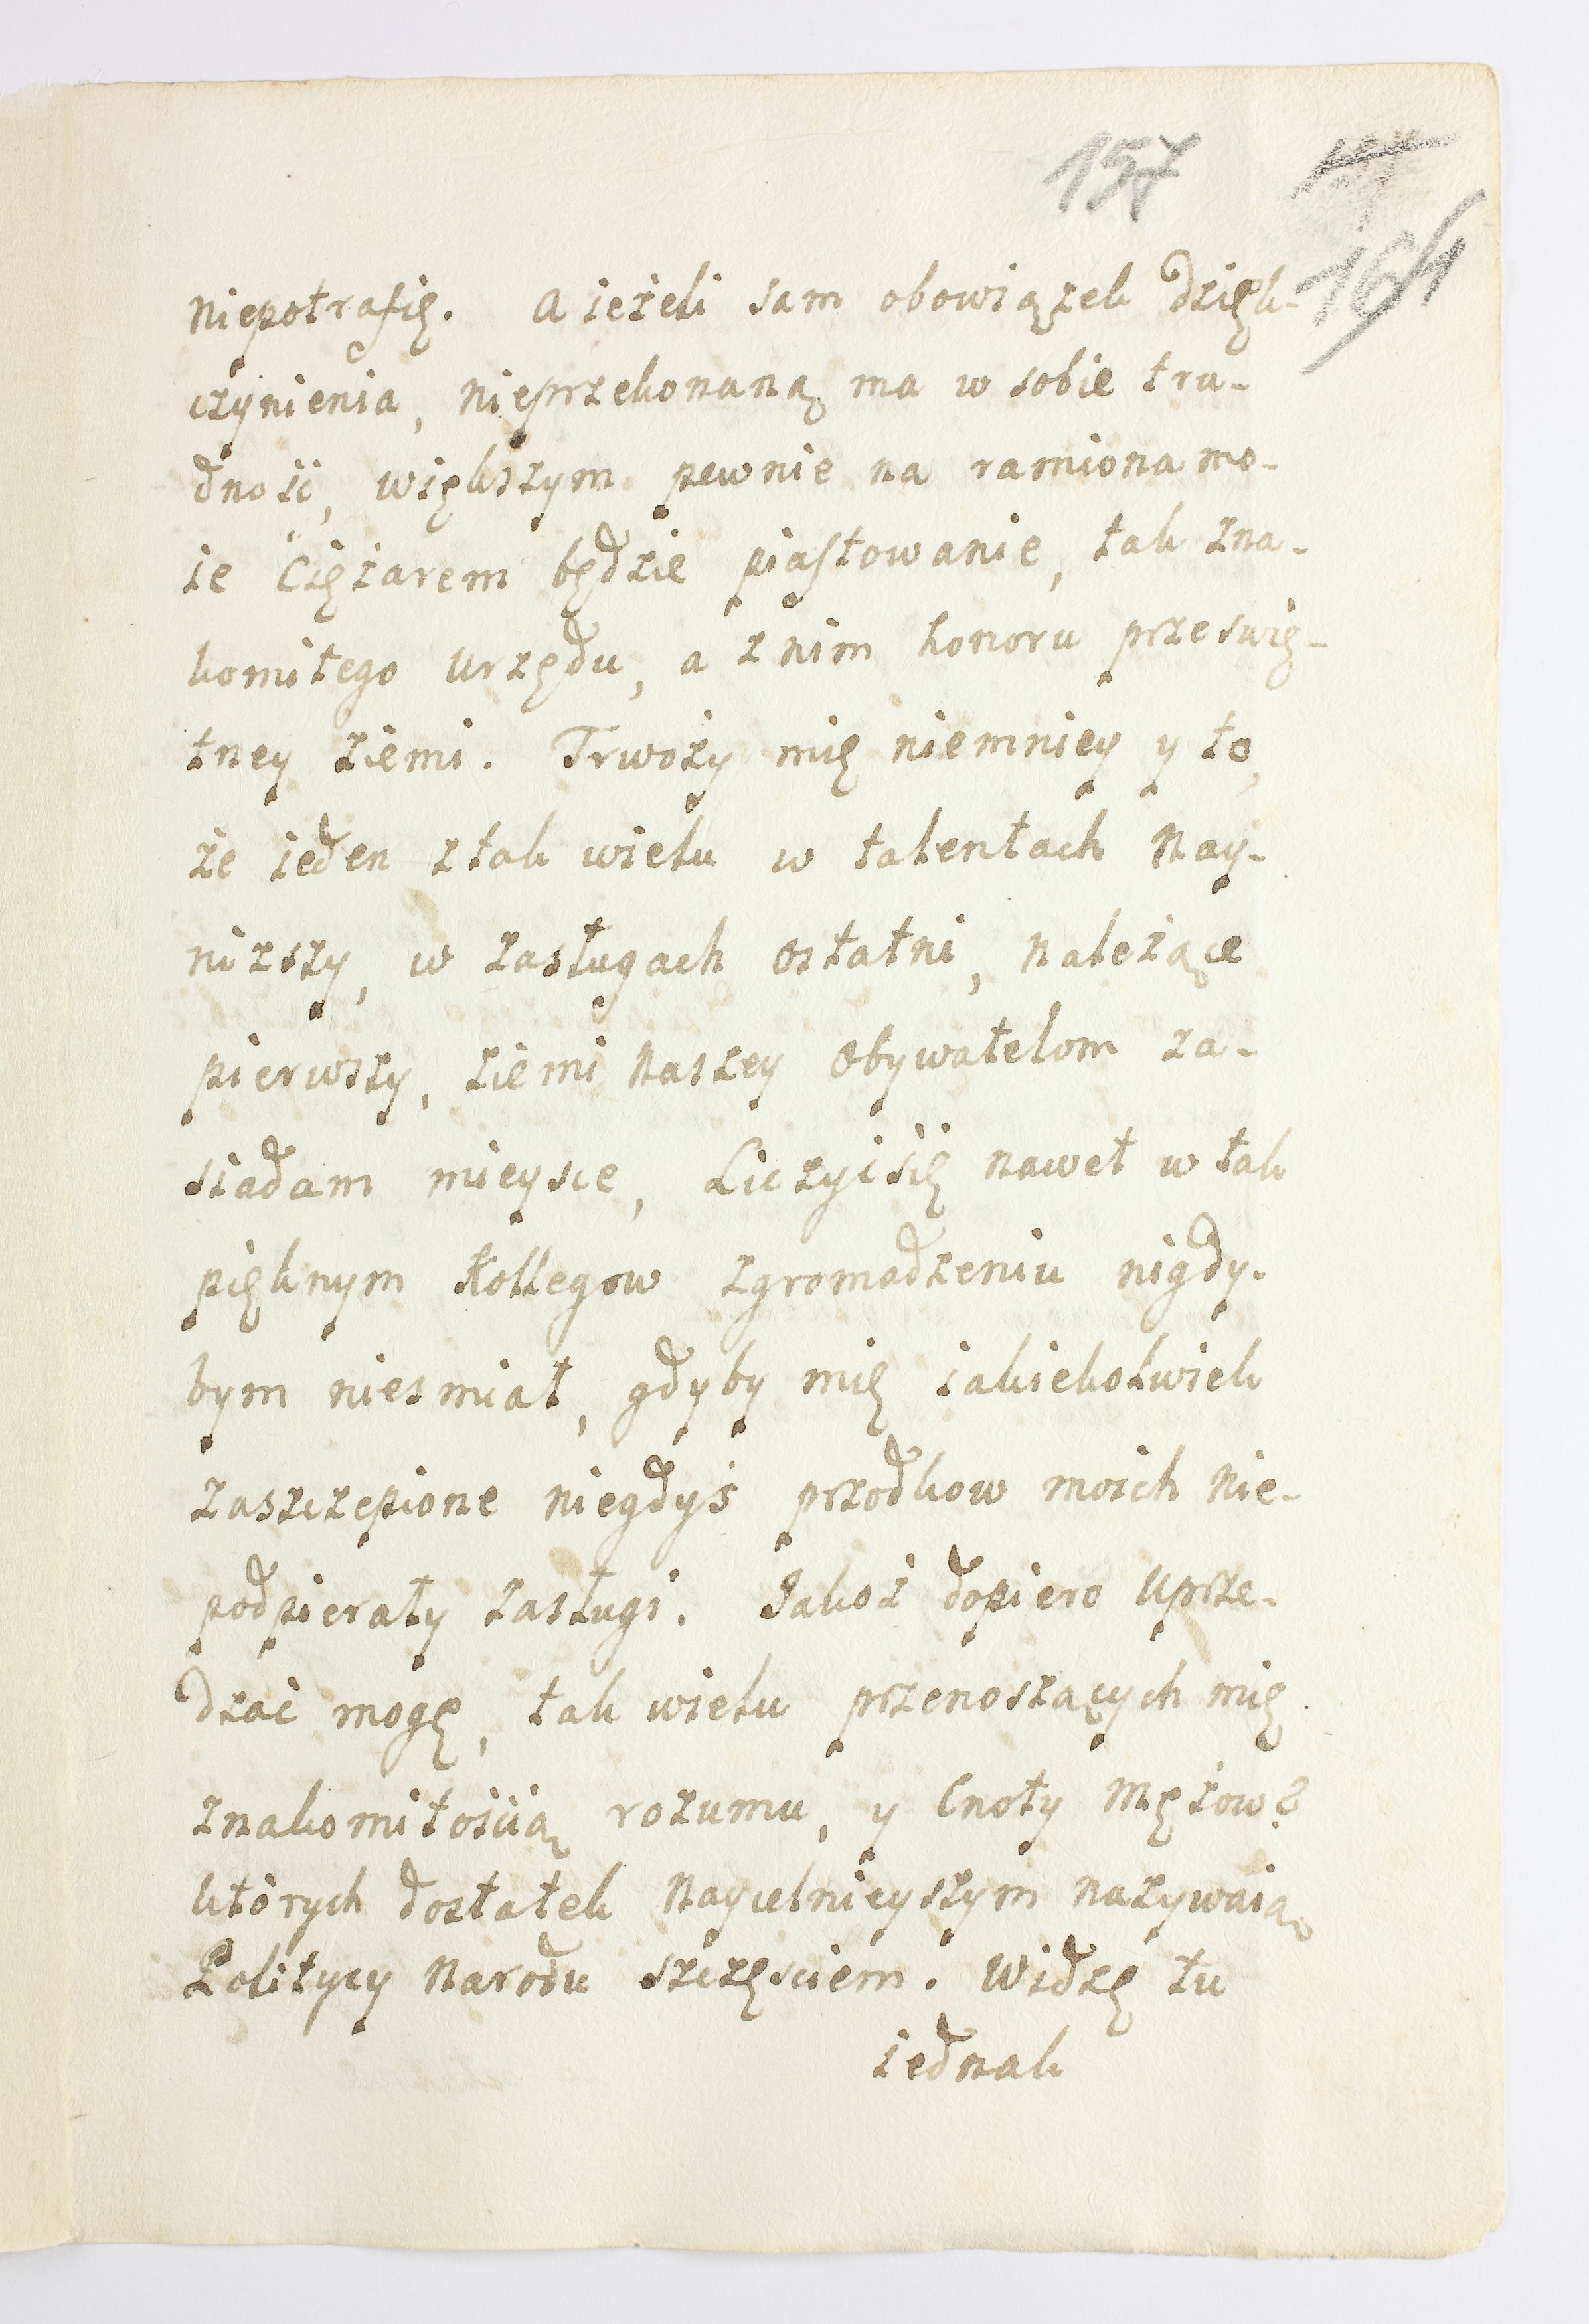 157
164
niepotrafię. A ieżeli sam obowiązek dzięk-
czynienia, nieprzekonaną ma w sobie tru-
dność, większym pewnie na ramiona mo-
ie Ciężarem będzie piastowanie, tak zna-
komitego urzędu, a z nim honoru prześwię-
tney ziemi. Trwoży mię niemniey y to,
że ieden z tak wielu w talentach nay-
niższy, w zasługach ostatni, należące
pierwszy, ziemi naszey obywatelom za-
siadam mieysce, Liczyć się nawet w tak
pięknym Kollegow zgromadzeniu nigdy-
bym niesmiał, gdyby mię iakiekolwiek
zaszczepione niegdyś przodkow moich nie-
podpierały zasługi. Jakoż dopiero uprze-
dzać mogę, tak wielu przenoszących mię
znakomitością rozumu, y Cnoty Mężow?
których dostatek naycelnieyszym nazywaią
Politycy Narodu szczęsciem. Widzę tu
iednak